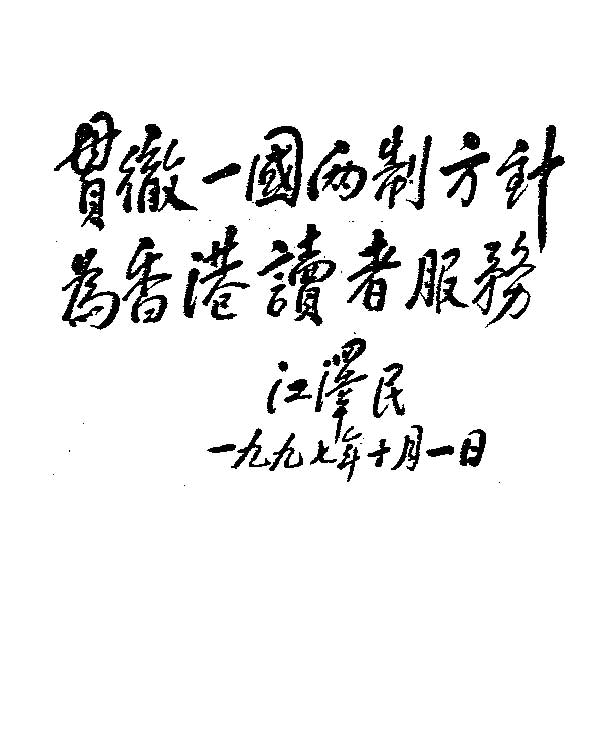 貫徹一國两制方針
為香港讀者服務
江澤民
一九九七年十月一日